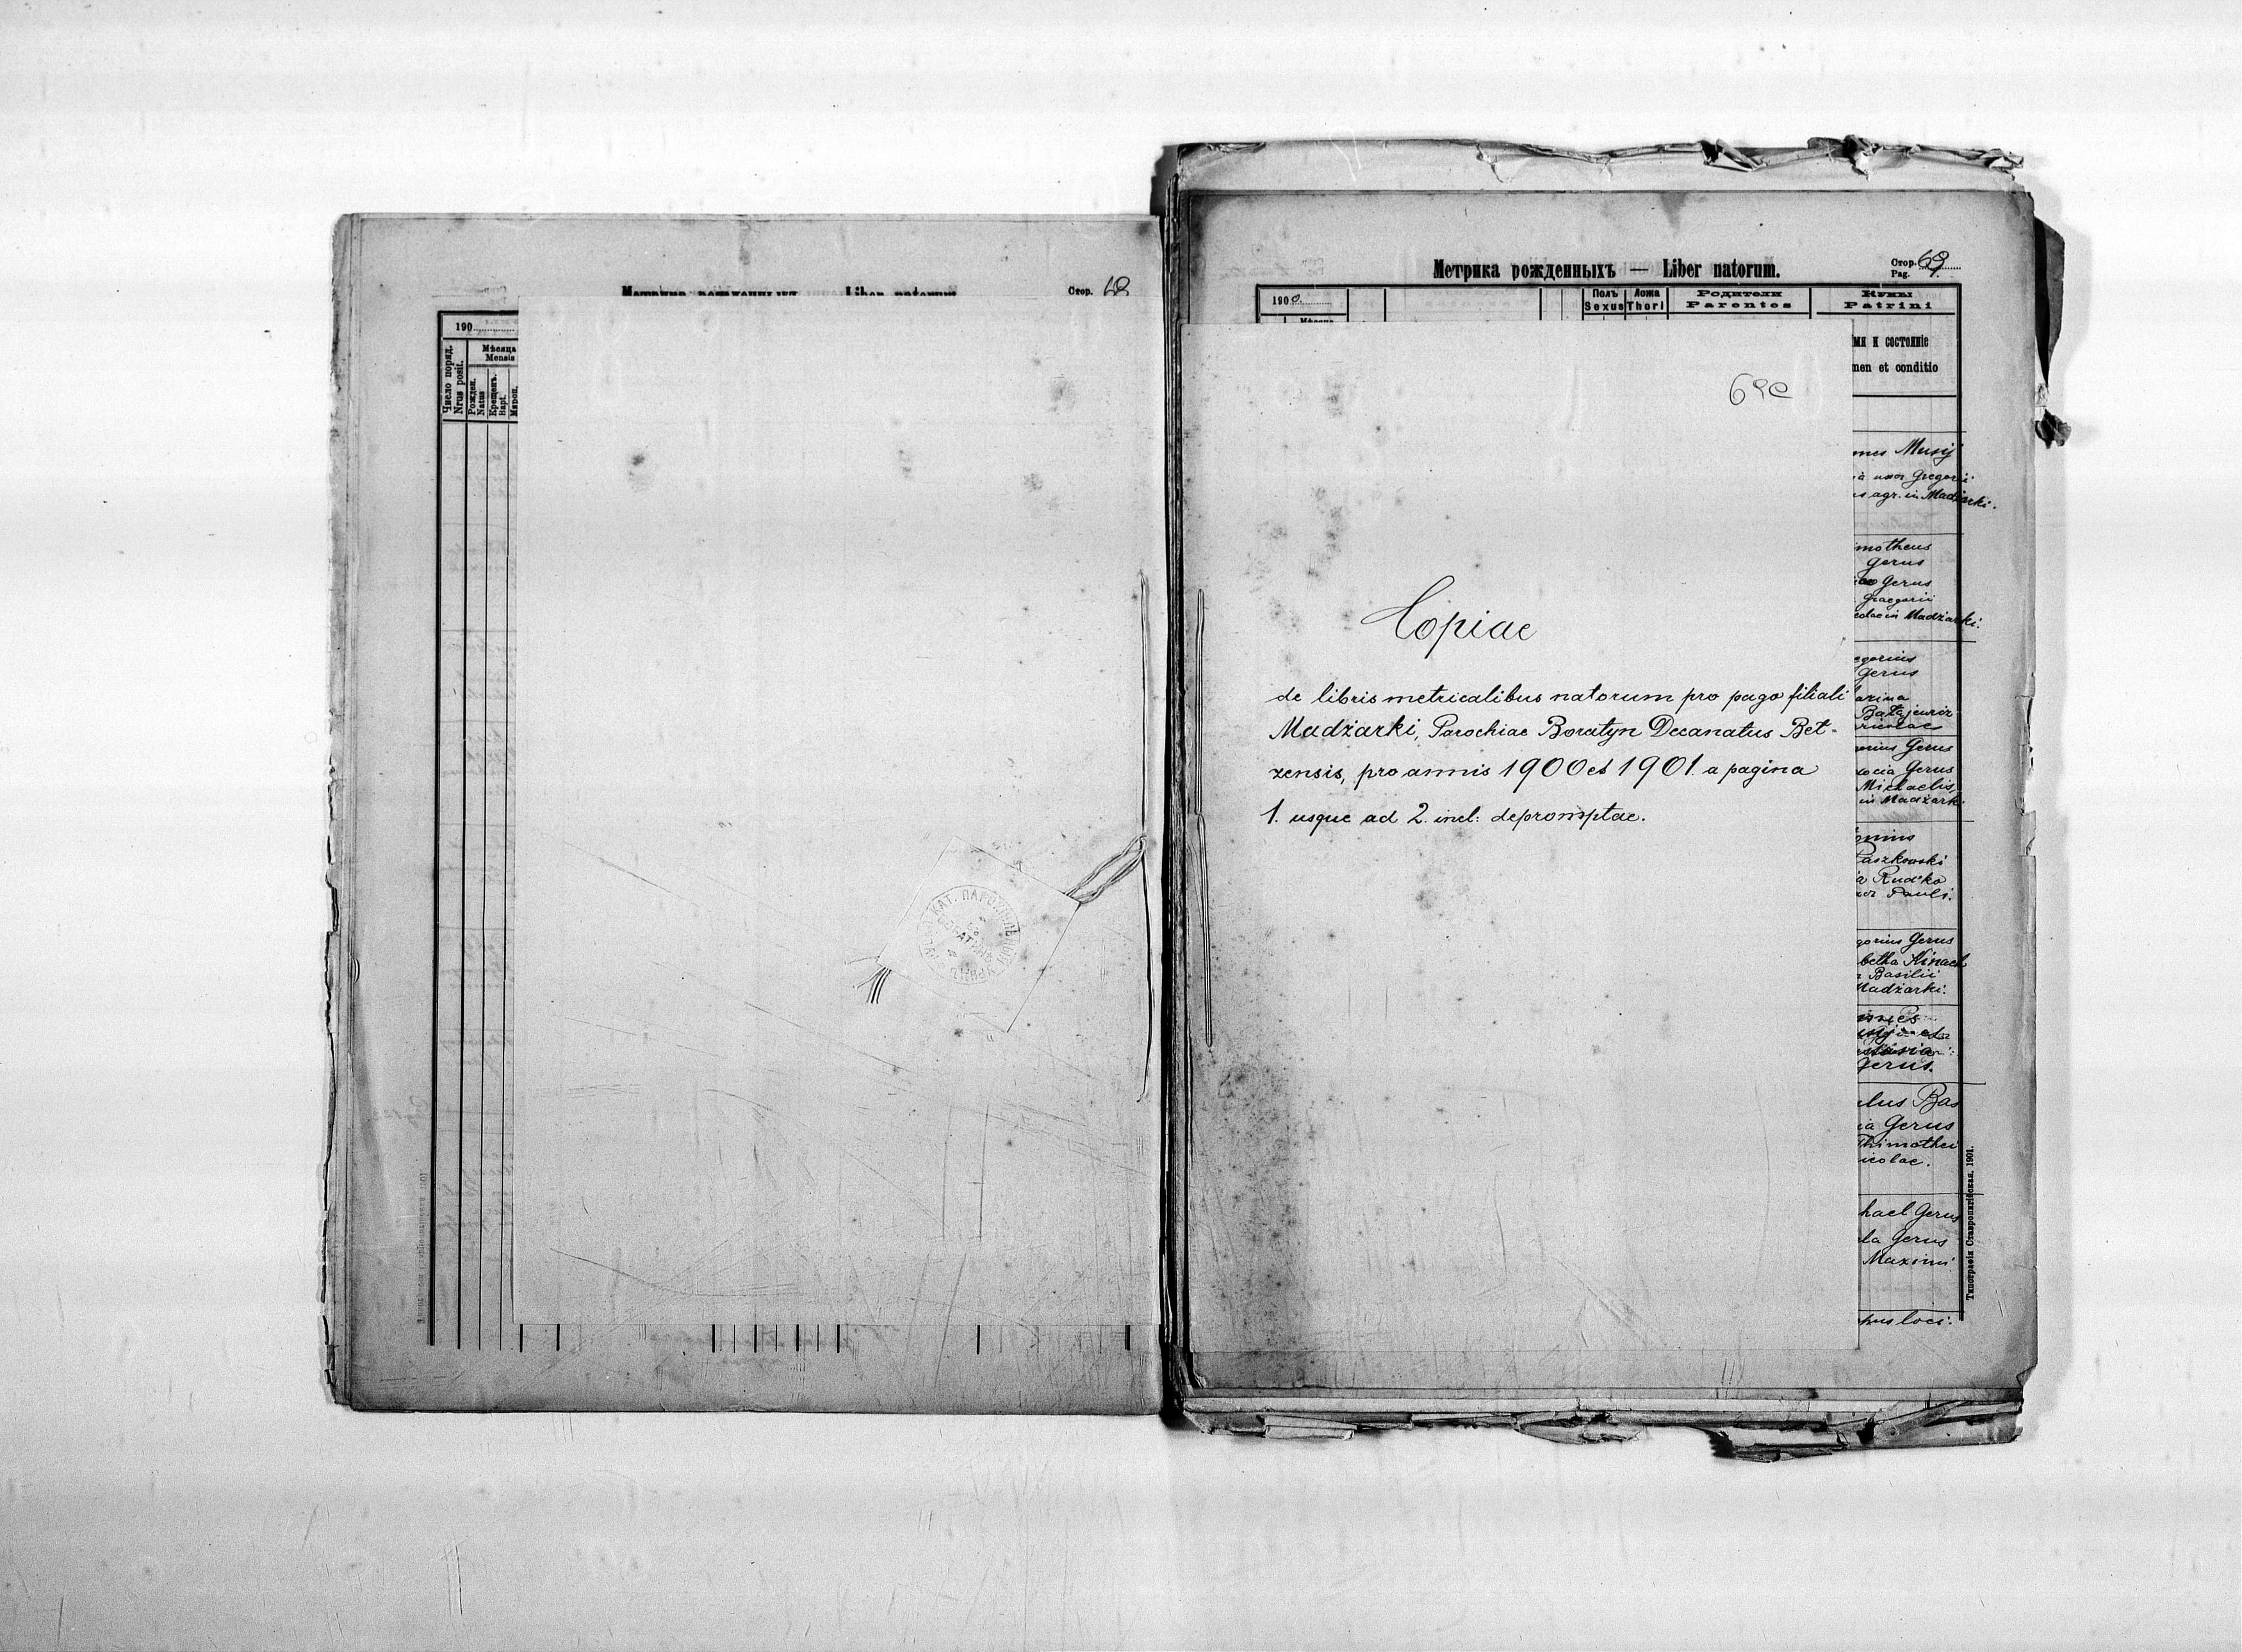 Стор. 68
190
Число поряд.
Nrus posit.
Мѣсяца
Mensis
Рожден.
Natus
Крещенъ.
Bapt.
Мѵроп.
Метрика рожденныхъ — Liber natorum.
Стор. 69
Pag. 1.
1900
Полъ
Sexus
Ложа
Thori
Родители
Parentes
Кумы
Patrini
мя и состояніе
men et conditio
69c
Copiae
de libris metricalibus natorum pro pago filiali
Madżarki, Parochiae Boratyn Decanatus Bet-
zensis, pro annis 1900 et 1901. a pagina
1. usque ad 2. incl: depromptae.
nnes Musij
ia uxor Gregorii
agr. in Madżarki.
imotheus
Gerus
Gerus
Graegorii
colae in Madżarki.
egorius
Gerus
arina
Gerus
xocia Gerus
Michaelis,
in Madżark.
Paszkowski
a Rudko
xor Pauli.
gorius Gerus
betha Kinach
Basilii
Madżarki.
Gerus.
ulus Bas
ia Gerus
Thimothei
icolae.
hael Gerus
la Gerus
Maximi
hus loci.
Типографія Ставропигійская. 1901.